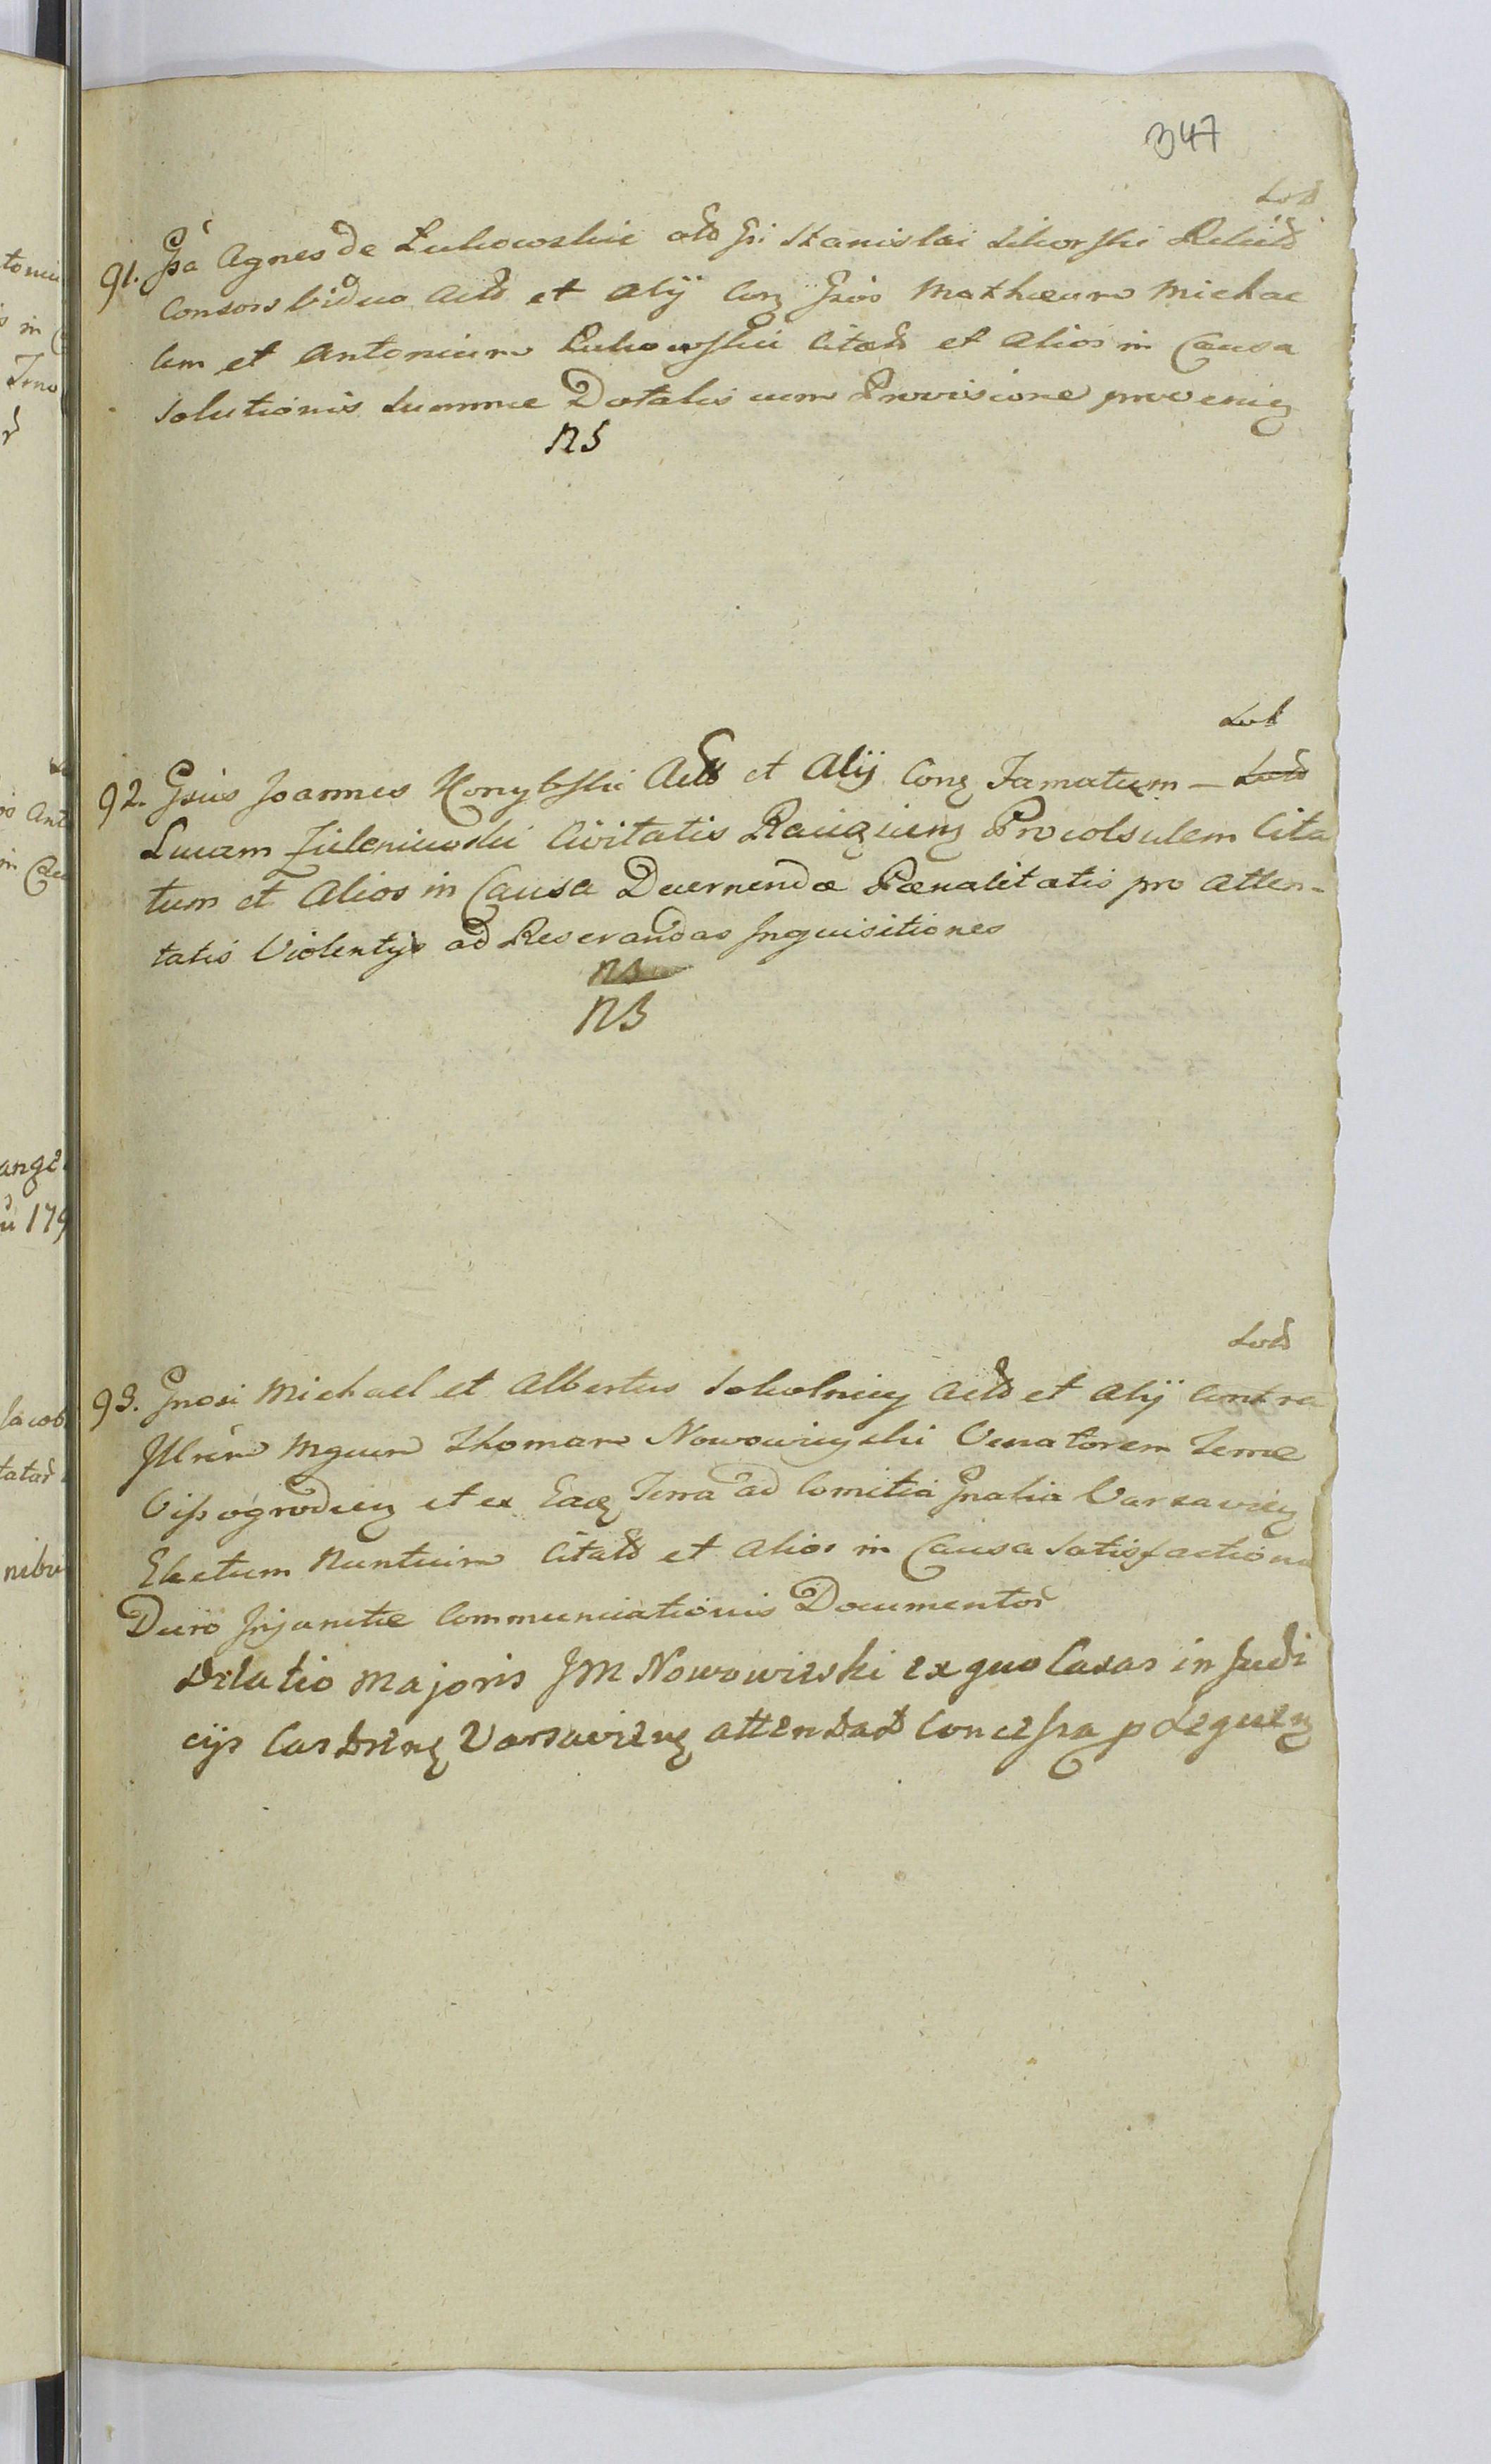 347
91. Gsa Agnes de Lukowskie olb Gsi Stanislai Sikorski Relictb
Consors Vidua Actb et Alij Conz Gsios Mathæum Michae
lem et Antonium Lukowskie Citatb et Alios in Causa
Solutionis Summæ Dotalis cum Provisione provenienz
NS
92. Gsus Joannes Konybski Actb et Alij Conz Famatum —
Lucam Zieleniewski Civitatis Raciązienz Procolsulem Cita
tum et Alios in Causa Decernendæ Pænalitatis pro Atten-
tatis Violentijs ad Reserandas Inquisitiones
ns
NS
93. Gnosi Michael et Albertus Sokolniccy Actb et Alij Contra
Illrem Mgcum Thomam Nowowieyski Venatorem Terræ
Vissogrodienz et ex Eadz Terra ad Comitia Gnalia Varsavienz
Electum Nuntium Citatb et Alios in Causa Satisfactionis
Decro Injunctæ Communicationis Documentor
Dilatio Majoris JM Nowowieski ex quo Casas in Judi
cijs Castrenz Varsavienz attentat Concessa p Sequenz